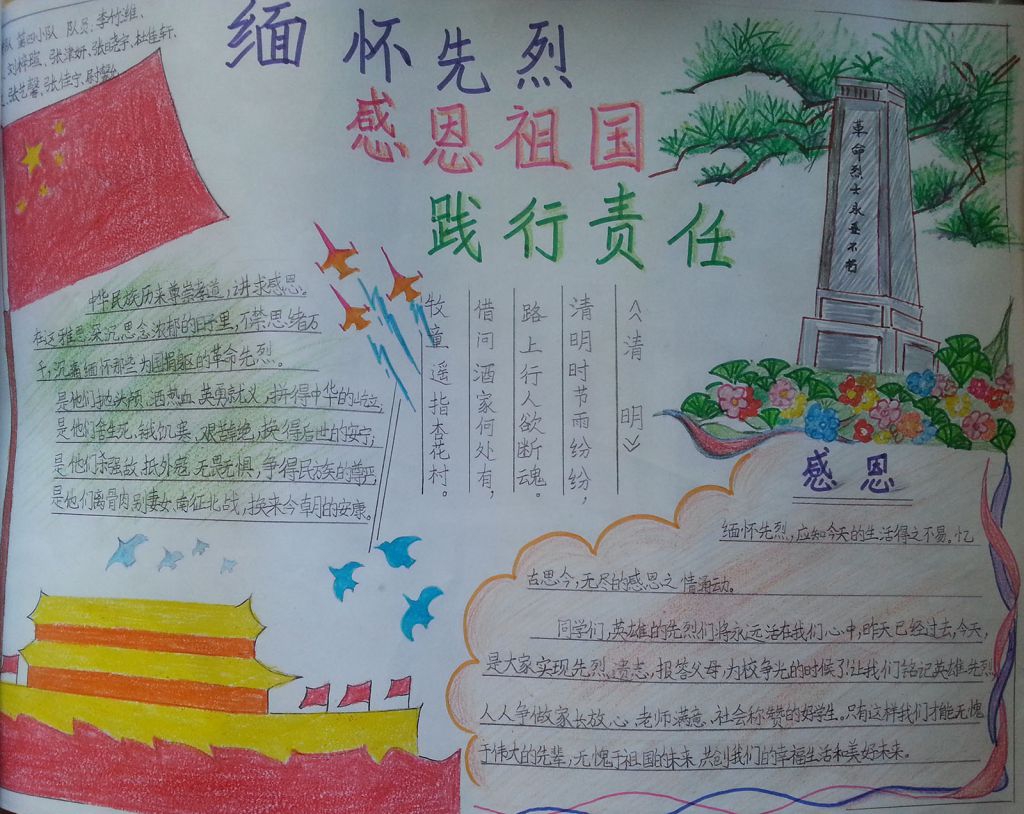 第四小队 队员:李竹潍、
张津妍、张晓宇、杜佳轩、
张艺馨、张佳宁、
缅怀先烈
感恩祖国
践行责任
革命烈士永垂不朽
中华民族历来尊崇孝道,讲求感恩。
在这雅思深沉、思念浓郁的日子里,不禁思绪万
千,沉痛缅怀那些为国捐躯的革命先烈。
是他们抛头颅、洒热血、英勇就义,拼得中华的屹立,
是他们舍生死、饿饥寒、艰苦卓绝,换得后世的安宁,
是他们杀强敌、抵外寇、无畏无惧,争得民族的尊严,
是他们离骨肉、别妻女、南征北战,换来今朝的安康。
《清 明》
清明时节雨纷纷,
路上行人欲断魂。
借问酒家何处有,
牧童遥指杏花村。
感恩
缅怀先烈,应知今天的生活得之不易。忆
古思今,无尽的感恩之情涌动。
同学们,英雄的先烈们将永远活在我们心中,昨天已经过去,今天,
是大家实现先烈遗志,报答父母,为校争光的时候了!让我们铭记英雄先烈,
人人争做家长放心、老师满意、社会称赞的好学生。只有这样我们才能无愧
于伟大的先辈,无愧于祖国的未来,共创我们的幸福生活和美好未来。